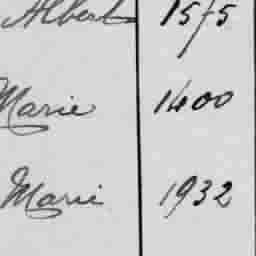 Albert 1575
Marie 1400
Marie 1932